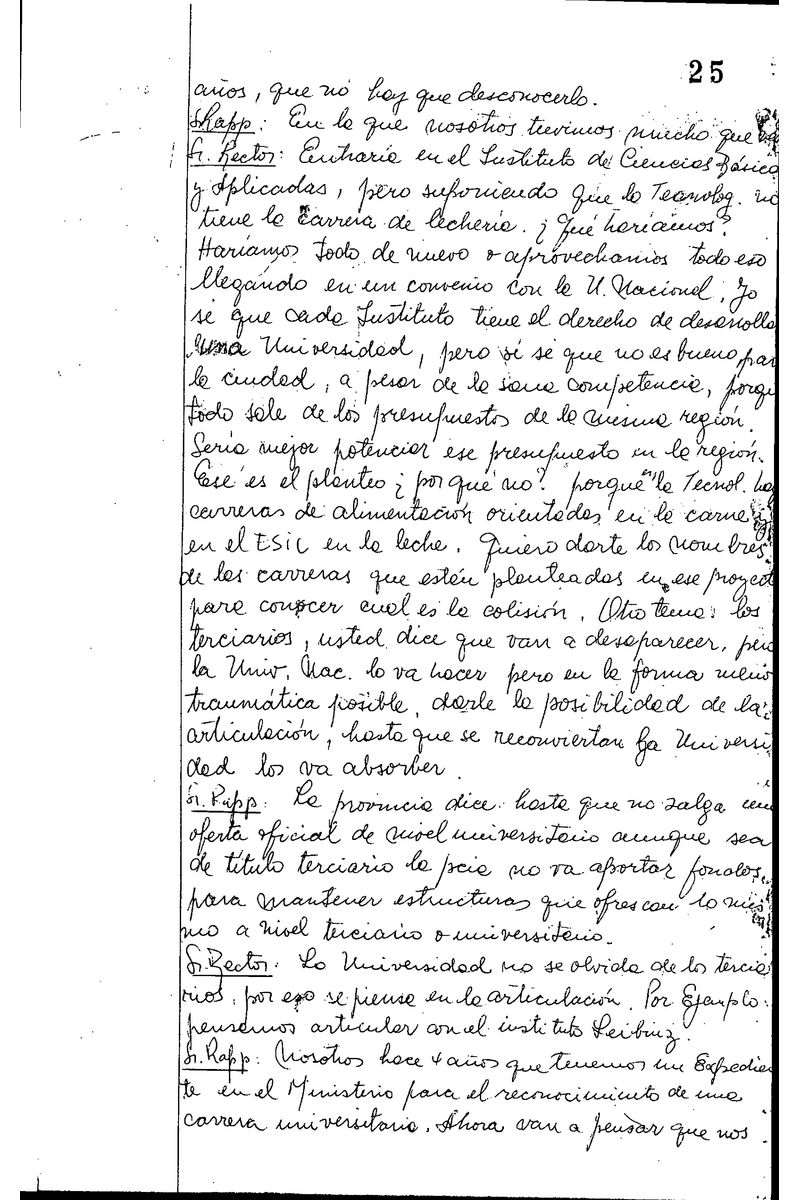 25
años, que no hay que desconocerlo.
Sr. Rapp: En lo que nosotros tuvimos mucho que va
Sr. Rector: Entraría en el Instituto de Ciencias Básica
y Aplicadas, pero suponiendo que la Tecnolog. no
tiene la carrera de lechería. ¿Qué haríamos?
Haríamos todo de nuevo o aprovechamos todo eso
llegando en un convenio con la U. Nacional, Yo
sé que cada Instituto tiene el derecho de desarrolla
una Universidad, pero sí sé que no es bueno par
la ciudad, a pesar de la sana competencia, porqu
todo sale de los presupuestos de la misma región.
Sería mejor potenciar ese presupuesto en la región.
Ese es el planteo ¿por qué no? porque en la Tecnol. hay
carreras de alimentación orientadas en la carne y
en el ESIL en la leche. Quiero darte los nombres
de las carreras que están planteadas en ese proyect
para conocer cual es la colisión. Otro tema: los
terciarios, usted dice que van a desaparecer, pero
la Univ. Nac. lo va hacer pero en la forma meno
traumática posible, darle la posibilidad de la
articulación, hasta que se reconviertan la Universi
dad los va absorber.
Sr. Rapp: La provincia dice: hasta que no salga una
oferta oficial de nivel universitario aunque sea
de título terciario la pcia no va aportar fondos,
para mantener estructuras que ofrescan lo mis
mo a nivel terciario o universitario.
Sr. Rector: La Universidad no se olvida de los tercia
rios, por eso se piensa en la articulación. Por Ejemplo:
pensamos articular con el instituto Leibinz.
Sr. Rapp: Nosotros hace 4 años que tenemos un Expedien
te en el Ministerio para el reconocimiento de una
carrera universitaria. Ahora van a pensar que nos